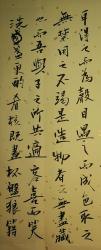 耳得之而為聲目遇之而成色取之
無禁用之不竭是造物者之無盡藏
也而吾與子之所共適客喜而笑
洗盞更酌肴核既盡杯盤狼籍